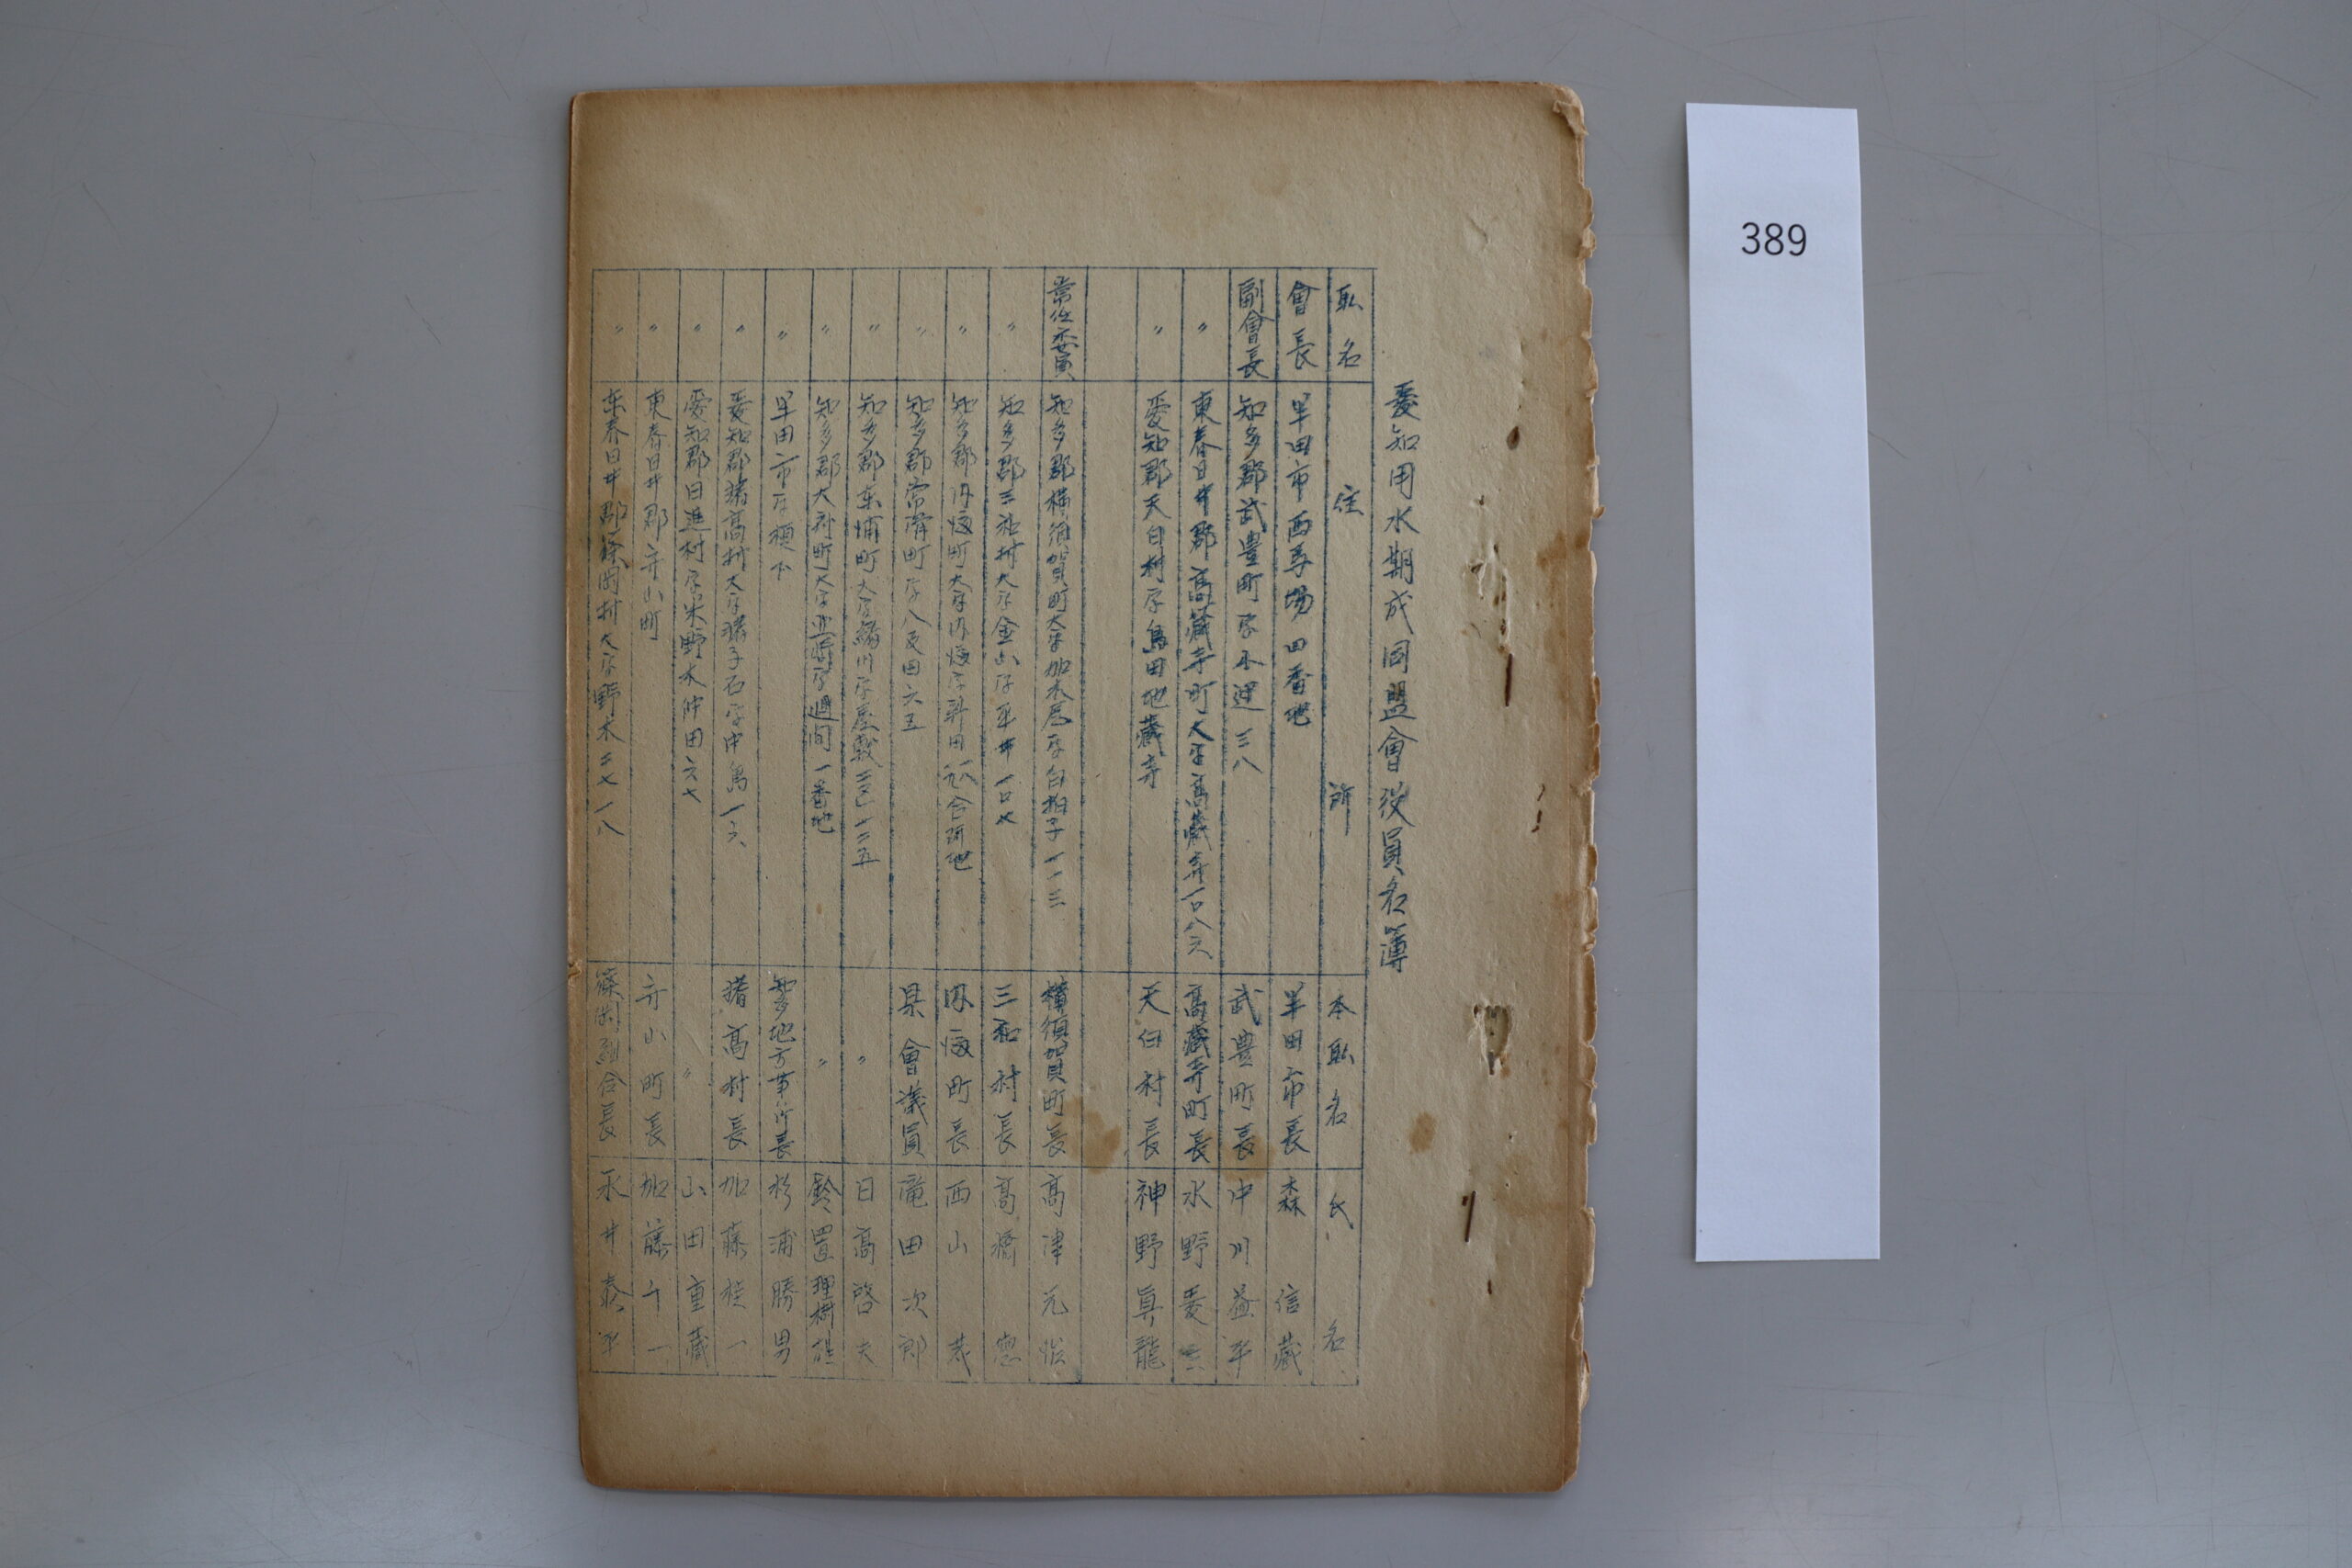 愛知用水期成同盟會役員名簿
耺名 住所 本耺名 氏名
會長 半田市西馬場四番地 半田市長 森信蔵
副會長 知多郡武豊町字小迎三八 武豊町長 中川益平
〃 東春日井郡高蔵寺町大字高蔵寺一〇八六 高蔵寺町長 水野愛
〃 愛知郡天白村字島田地蔵寺 天白村長 神野眞龍
常任委員 知多郡横須賀町大字加木屋字白拍子一一三 横須賀町長 高津元
〃 知多郡三和村大字金山字平井一〇七 三和村長 高橋
〃 知多郡内海町大字内海字 田 合併地 内海町長 西山茂
〃 知多郡常滑町字八反田六五 県會議員 竜田次郎
〃 知多郡东浦町大字緒川字屋敷 〃 日高啓夫
〃 知多郡大府町大字 字週間一番地 〃 鈴置理樹
〃 半田市字榎下 知多地方事ム所長 杉浦勝男
〃 愛知郡猪高村大字猪子石字中島一六 猪高村長 加藤桂一
〃 愛知郡日進村字米野木仲田六七 〃 山田重蔵
〃 東春日井郡守山町 守山町長 加藤千一
〃 东春日井郡篠岡村大字 篠岡 長 永井泰平
389